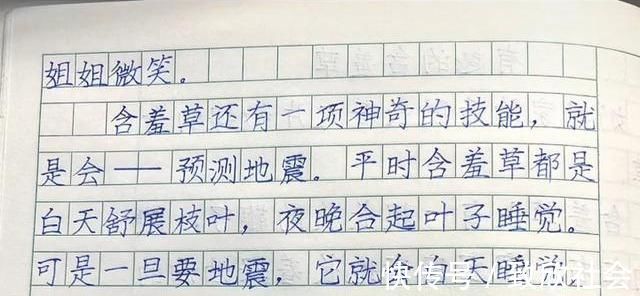 姐姐微笑。
含羞草还有一项神奇的技能，就
是会——预测地震。平时含羞草都是
白天舒展枝叶，夜晚合起叶子睡觉。
可是一旦要地震，它就会白天睡觉，
快传号